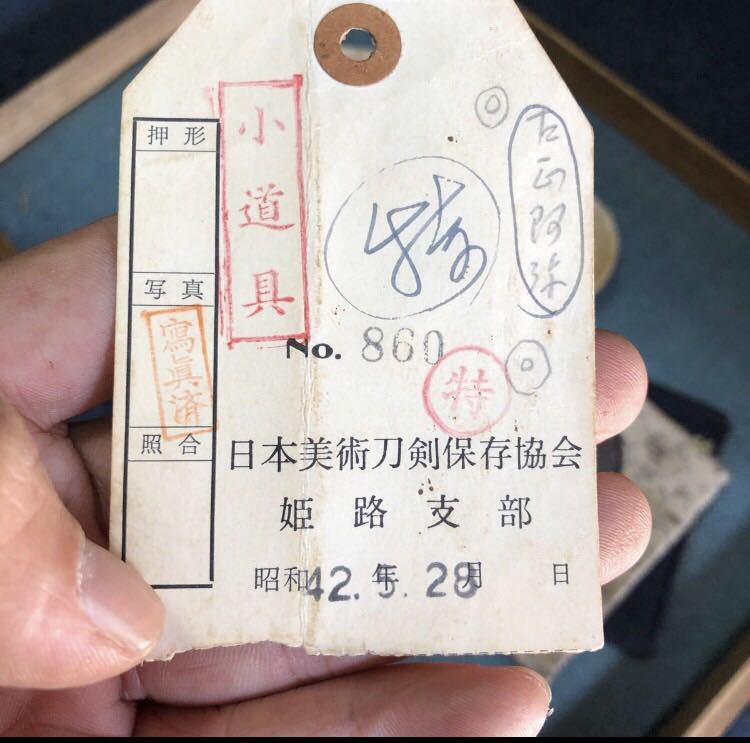 押形
写真
寫眞済
照合
小道具
古正阿弥
特
No. 860
特
日本美術刀剣保存協会
姫路支部
昭和42.年5.28月 日